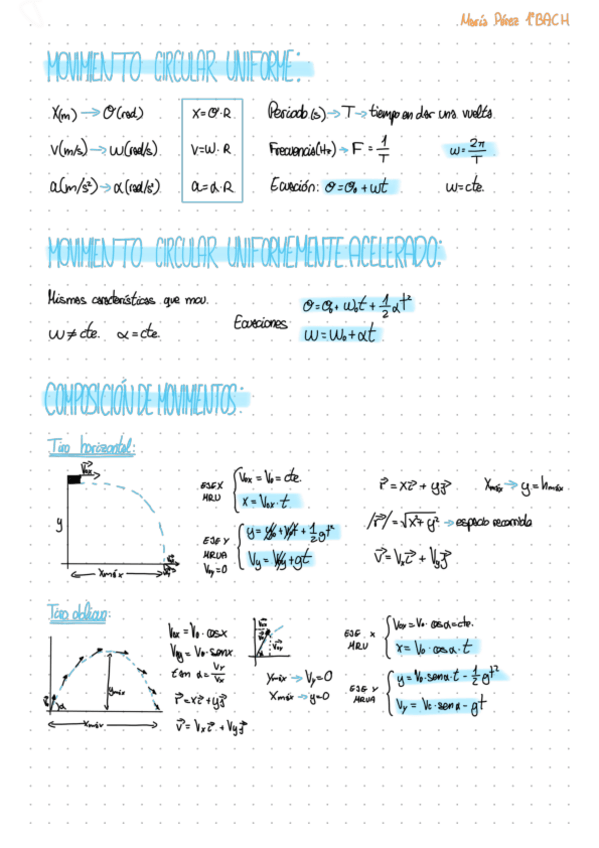 María Pérez 1ºBACH
MOVIMIENTO CIRCULAR UNIFORME:
X(m) → θ(rad)
x=θ·R
Periodo(s) → T → tiempo en dar una vuelta
v(m/s) → ω(rad/s)
v=ω·R
Frecuencia(Hz) → F = 1/T
ω = 2π/T
a(m/s²) → α(rad/s²)
a=α·R
Ecuación: θ=θ₀+ωt
ω=cte.
MOVIMIENTO CIRCULAR UNIFORMEMENTE ACELERADO:
Mismas características que mcu.
ω≠cte. α=cte.
Ecuaciones
θ=θ₀+ω₀t+1/2 αt²
ω=ω₀+αt
COMPOSICIÓN DE MOVIMIENTOS:
Tiro horizontal:
V₀x
y
xmáx
EJE X
MRU
V₀x = V₀ = cte.
x = V₀x·t
EJE Y
MRUA
V₀y=0
y = y₀ + V₀t + 1/2 gt²
Vy = V₀y + gt
r⃗ = xi⃗ + yj⃗
Xmáx → y=hmáx.
/r⃗/ = √x²+y² → espacio recorrido
v⃗ = Vxi⃗ + Vyj⃗
Tiro oblicuo:
α
ymáx
xmáx
V₀x = V₀·cosα
V₀y = V₀·senα.
tan α = Vy/Vx
r⃗ = xi⃗ + yj⃗
v⃗ = Vxi⃗ + Vyj⃗
ymáx → Vy=0
Xmáx → y=0
EJE X
MRU
V₀x = V₀·cosα = cte.
x = V₀·cosα·t
EJE Y
MRUA
y = V₀·senα·t - 1/2 gt²
Vy = V₀·senα - gt